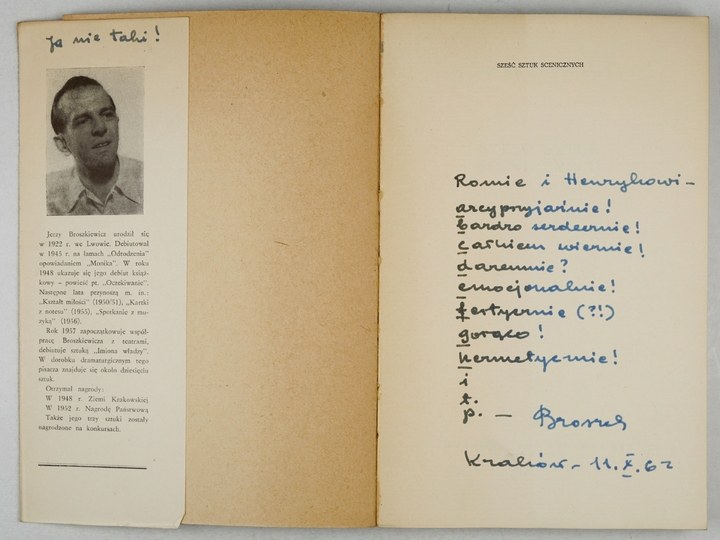 Ja nie taki!
Jerzy Broszkiewicz urodził się
w 1922 r. we Lwowie. Debiutował
w 1945 r. na łamach „Odrodzenia"
opowiadaniem „Monika". W roku
1948 ukazuje się jego debiut książ-
kowy – powieść pt. „Oczekiwanie".
Następne lata przynoszą m. in.:
„Kształt miłości" (1950/51), „Kartki
z notesu" (1955), „Spotkanie z mu-
zyką" (1956).
Rok 1957 zapoczątkowuje współ-
pracę Broszkiewicza z teatrami,
debiutuje sztuką „Imiona władzy".
W dorobku dramaturgicznym tego
pisarza znajduje się około dziesięciu
sztuk.
Otrzymał nagrody:
W 1948 r. Ziemi Krakowskiej
W 1952 r. Nagrodę Państwową
Także jego trzy sztuki zostały
nagrodzone na konkursach.
SZEŚĆ SZTUK SCENICZNYCH
Romie i Henrykowi –
arcyprzyjaźnie!
bardzo serdecznie!
całkiem wiernie!
daremnie?
emocjonalnie!
fertycznie (?!)
gorąco!
hermetycznie!
i
t.
p. – Broszek
Kraków – 11.X.62